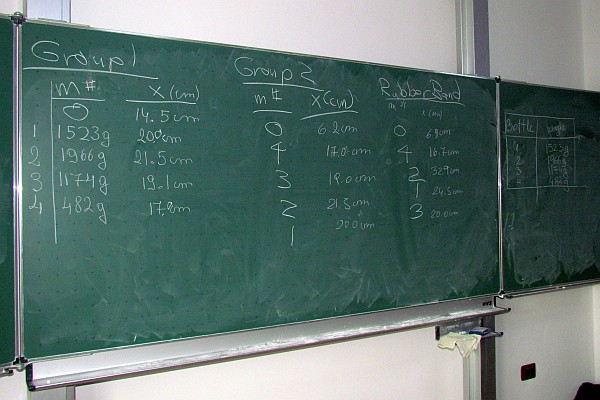 Group 1
m# x (cm)
0 14.5 cm
1 1523g 20.0cm
2 1966g 21.5 cm
3 1174g 19.1 cm
4 482g 17.0cm
Group 2
m# X (cm)
0 6.2 cm
4 17.0 cm
3 19.0 cm
2 21.5 cm
1 20.0 cm
Rubber Band
m# x (cm)
0 6.9cm
4 16.7cm
2 32.9cm
1 24.5cm
3 20.0cm
Bottle weight
1 1523g
2 1966g
3 1174g
4 482g